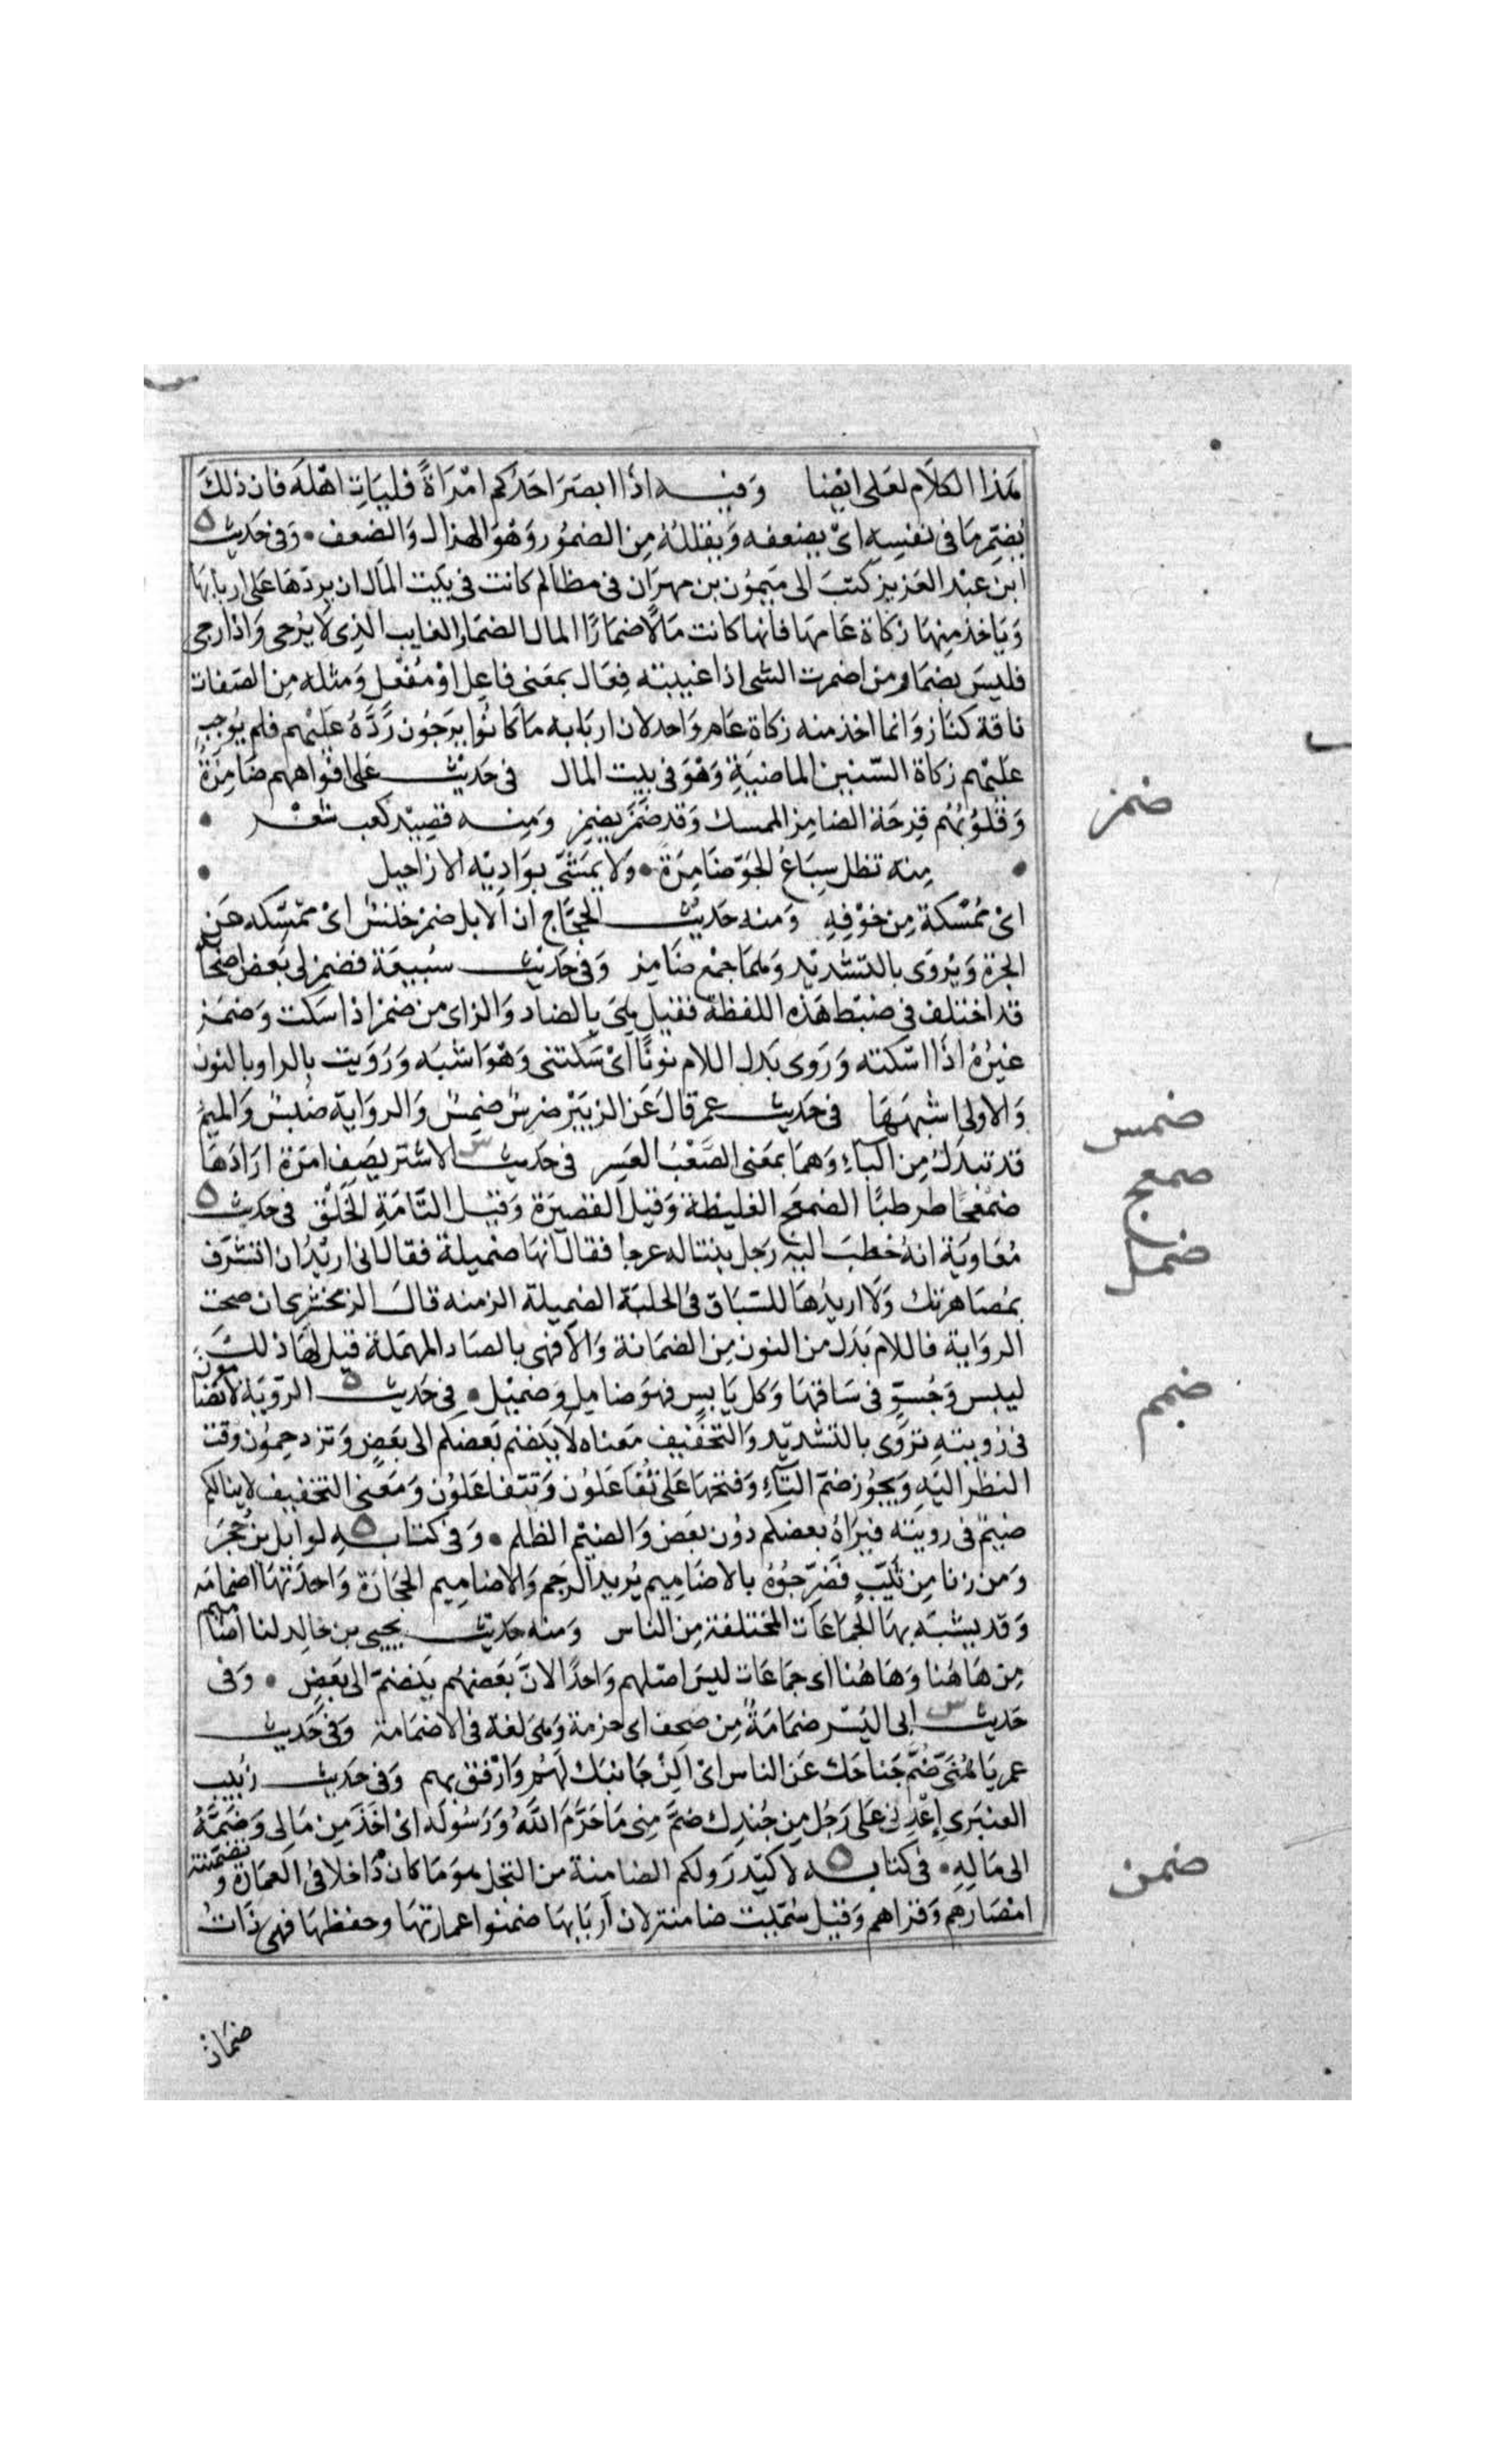 هَذا الكلَام لعَلى ايْضا وَفيـه اذَا ابصَرَ احَدُكم امْرَاةً فليَاتِ اهْلَه فان ذلكَ
يُضمِر مَا فى نفسِهِ اىْ يضعفه وَيقللهُ مِن الضمُور وَهْوَ الهزال وَالضعف • وَفى حَديث ه
ابن عبْد العَزيز كتبَ الى مَيمُون بن مهرَان فى مظالم كانت فى بَيت المَال ان يردّهَا عَلى اربابهَا
وَيَاخذ مِنهَا زكاة عَامهَا فانها كانت مَالًا ضمَارًا المال الضمَار الغايب الذِى لَا يُرجى وَاذا رجى
فليسَ بضمَار من اضمرت الشى اذا غيبته فِعَال بمعَنى فاعِل اوْ مُفْعَل وَمثله مِن الصّفات
ناقة كنَاز وَانما اخذ منه زكاة عَام واحد لان اربَابه مَا كانُوا يرَجُون رَدَّهُ عَليْهم فلم يُوجب
عليْهم زكاة السّنين الماضيَةِ وَهْوَ فى بيت المال فى حَديث عَلى افوَاههم ضَامِزَةٌ
وَقلُوبُهُم قرِحَة الضامِز الممسك وَقد ضَمَزَ يضمِز وَمِنـه قصِيْد كعب شعْـر •
• مِنه تظل سِبَاعُ الجَوّ ضَامِزَةً • وَلَا تمَشّى بوَادِيْه الارَاجيل •
اىْ مُمْسَكة مِن خوْفِهِ وَمنه حَديث الحَجّاج ان الابل ضمز خنسٌ اىْ ممْسَكه عَن
الجرّة وَيُروَى بالتشديْد وَهما جمْع ضَامِز وَفى حَديث سُبيعَة فضمز لى بَعض اصْحَا
قد اختلف فى ضبَط هَذه اللفظة فقيل هىَ بالضاد وَالزاى من ضمز اذا سَكت وَضمَز
غيْرُهُ اذَا اسْكته وَرَوى بَدل اللام نونًا اىْ سَكتنى وَهْوَ اشبَه وَرَوَيت بالرا وبالنون
وَالاولى اشبَههَا فى حَديث عمر قالَ عَن الزبَيْر ضرِسٌ ضمِسٌ وَالروَاية ضَبسٌ وَالميمُ
قد تبدَلُ مِن البَاءِ وَهمَا بمعَنى الصَّعْب العَسِر فى حَديث س الاشتر يصَفِ امرَة ارَادَهَا
ضمْعَجًا طرطبًا الضمعَج الغليظة وَقيل القصيرَة وَقيْل التَّامَةِ الخَلْق فى حَديث ه
مُعَاويَة انهُ خطبَ اليْهِ رَجل بنتا له عرجا فقال انهَا ضميلة فقال انى اريْدُ ان اتشرَف
بمُصَاهرتك وَلَا اريدُهَا للسّبَاق فى الحلبَة الضمِيلة الزمنه قالَ الزمَخشرِى ان صحت
الروَاية فاللام بَدَل من النون مِن الضمَانة وَالا فهى بالصَاد المهمَلة قيل لهَا ذلكَ
ليبس وَجُسوّ فى سَاقهَا وَكل يَابس فهوَ ضامِل وَضميْل • فى حَديث ه الرّوْيَة لا تضامّون
فى رُويتهِ يرْوَى بالتشديْد وَالتخفيف مَعناه لَا ينضم بَعضكم الى بَعضٍ وَتزدحِمُون وَقت
النظر اليْهِ وَيجُوز ضمّ التآءِ وَفتحهَا عَلى تُفَاعَلوُن وَتتفاعَلوُن وَمَعنى التخفيف لا ينالكم
ضيْمٌ فى رويته فيرَاهُ بعضكم دوُن بَعَض وَالضيْم الظلم • وَفى كتابـه ه لوَايل بن حُجرَ
وَمن زنا مِن ثيّبٍ فضَرّجُوْهُ بالاضَامِيم يُريد الرجم وَالاضامِيم الحجَارَة وَاحدَتهَا اضمامَه
وَقد يشبّه بهَا الجَمَاعَات المختلفة مِن الناس وَمنه حَديث يحيى بن خالِد لنا اضاميم
مِن هَاهُنا وَهَاهُنا اى جمَاعَات ليسَ اصْلهم وَاحدًا لانّ بَعَضهُم ينضمّ الى بَعَضٍ • وَفى
حَديث س ابى اليُسْر ضمَامَةٌ مِن صحف اى حزمة وَهىَ لغة فى الاضمَامة وَفى حَديث
عمر يَا هُنَىّ ضُمَّ جَناحَك عَن الناس اىْ الِنْ جَانبَك لهُم وَارْفق بهم وَفى حَديث زُبَيب
العنبَرى اِعْدنى عَلى رَجُل مِن جُندِك ضمَّ مِنى مَا حَرَّمَ اللَّهُ وَرَسُوله اىْ اخَذَ مِن مَالى وَضمَّهُ
الى مَالِهِ • فى كتابـه ه لاكيْدرَ وَلكم الضامنة من النخل هوَ مَا كان دَاخلا فى العمَارة وَتضمّنته
امْصَارهم وَقراهم وَقيْل سُمّيت ضامنة لان اَربَابهَا ضمنوا عمارتهَا وحفظهَا فهى ذَاتُ
ضمَان
ضمز
ضمس
ضمعج
ضمل
ضمم
ضمن